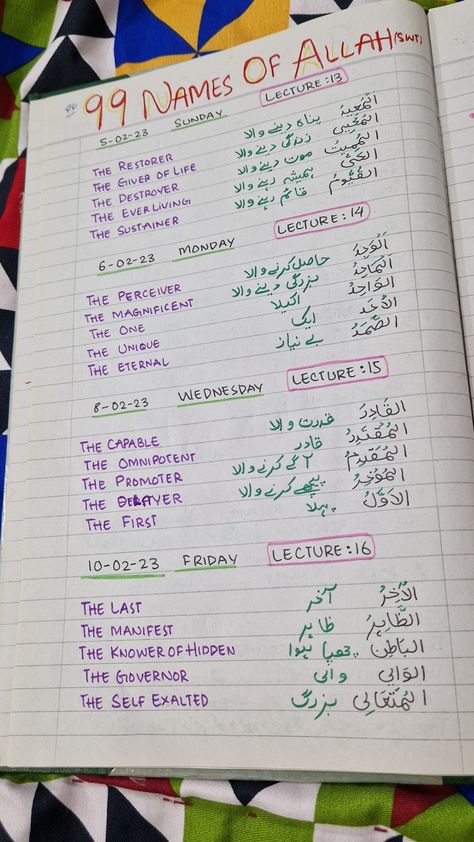 99 NAMES OF ALLAH (SWT)
5-02-23 SUNDAY LECTURE:13
THE RESTORER پناہ دینے والا المُعِيدُ
THE GIVER OF LIFE زندگی دینے والا المُحْيِى
THE DESTROYER موت دینے والا المُمِيتُ
THE EVERLIVING ہمیشہ رہنے والا الحَيُّ
THE SUSTAINER قائم رہنے والا القَيُّومُ
6-02-23 MONDAY LECTURE:14
THE PERCEIVER حاصل کرنے والا الوَاجِدُ
THE MAGNIFICENT بزرگی دینے والا المَاجِدُ
THE ONE اکیلا الوَاحِدُ
THE UNIQUE ایک الأَحَد
THE ETERNAL بے نیاز الصَّمَدُ
8-02-23 WEDNESDAY LECTURE:15
THE CAPABLE قدرت والا القَادِرُ
THE OMNIPOTENT قادر المُقْتَدِرُ
THE PROMOTER آگے کرنے والا المُقَدِّمُ
THE DELAYER پیچھے کرنے والا المُؤَخِّرُ
THE FIRST پہلا الأَوَّلُ
10-02-23 FRIDAY LECTURE:16
THE LAST آخر الآخِرُ
THE MANIFEST ظاہر الظَّاهِرُ
THE KNOWER OF HIDDEN چھپا ہوا البَاطِن
THE GOVERNOR والی الوَالِي
THE SELF EXALTED بزرگ المُتَعَالِي